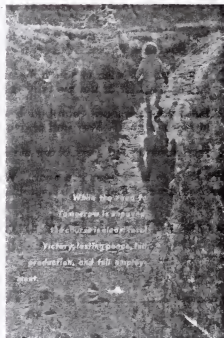 While the road to
Tomorrow is
the course is clear: total
Victory, lasting peace, full
production, and full employ-
ment.